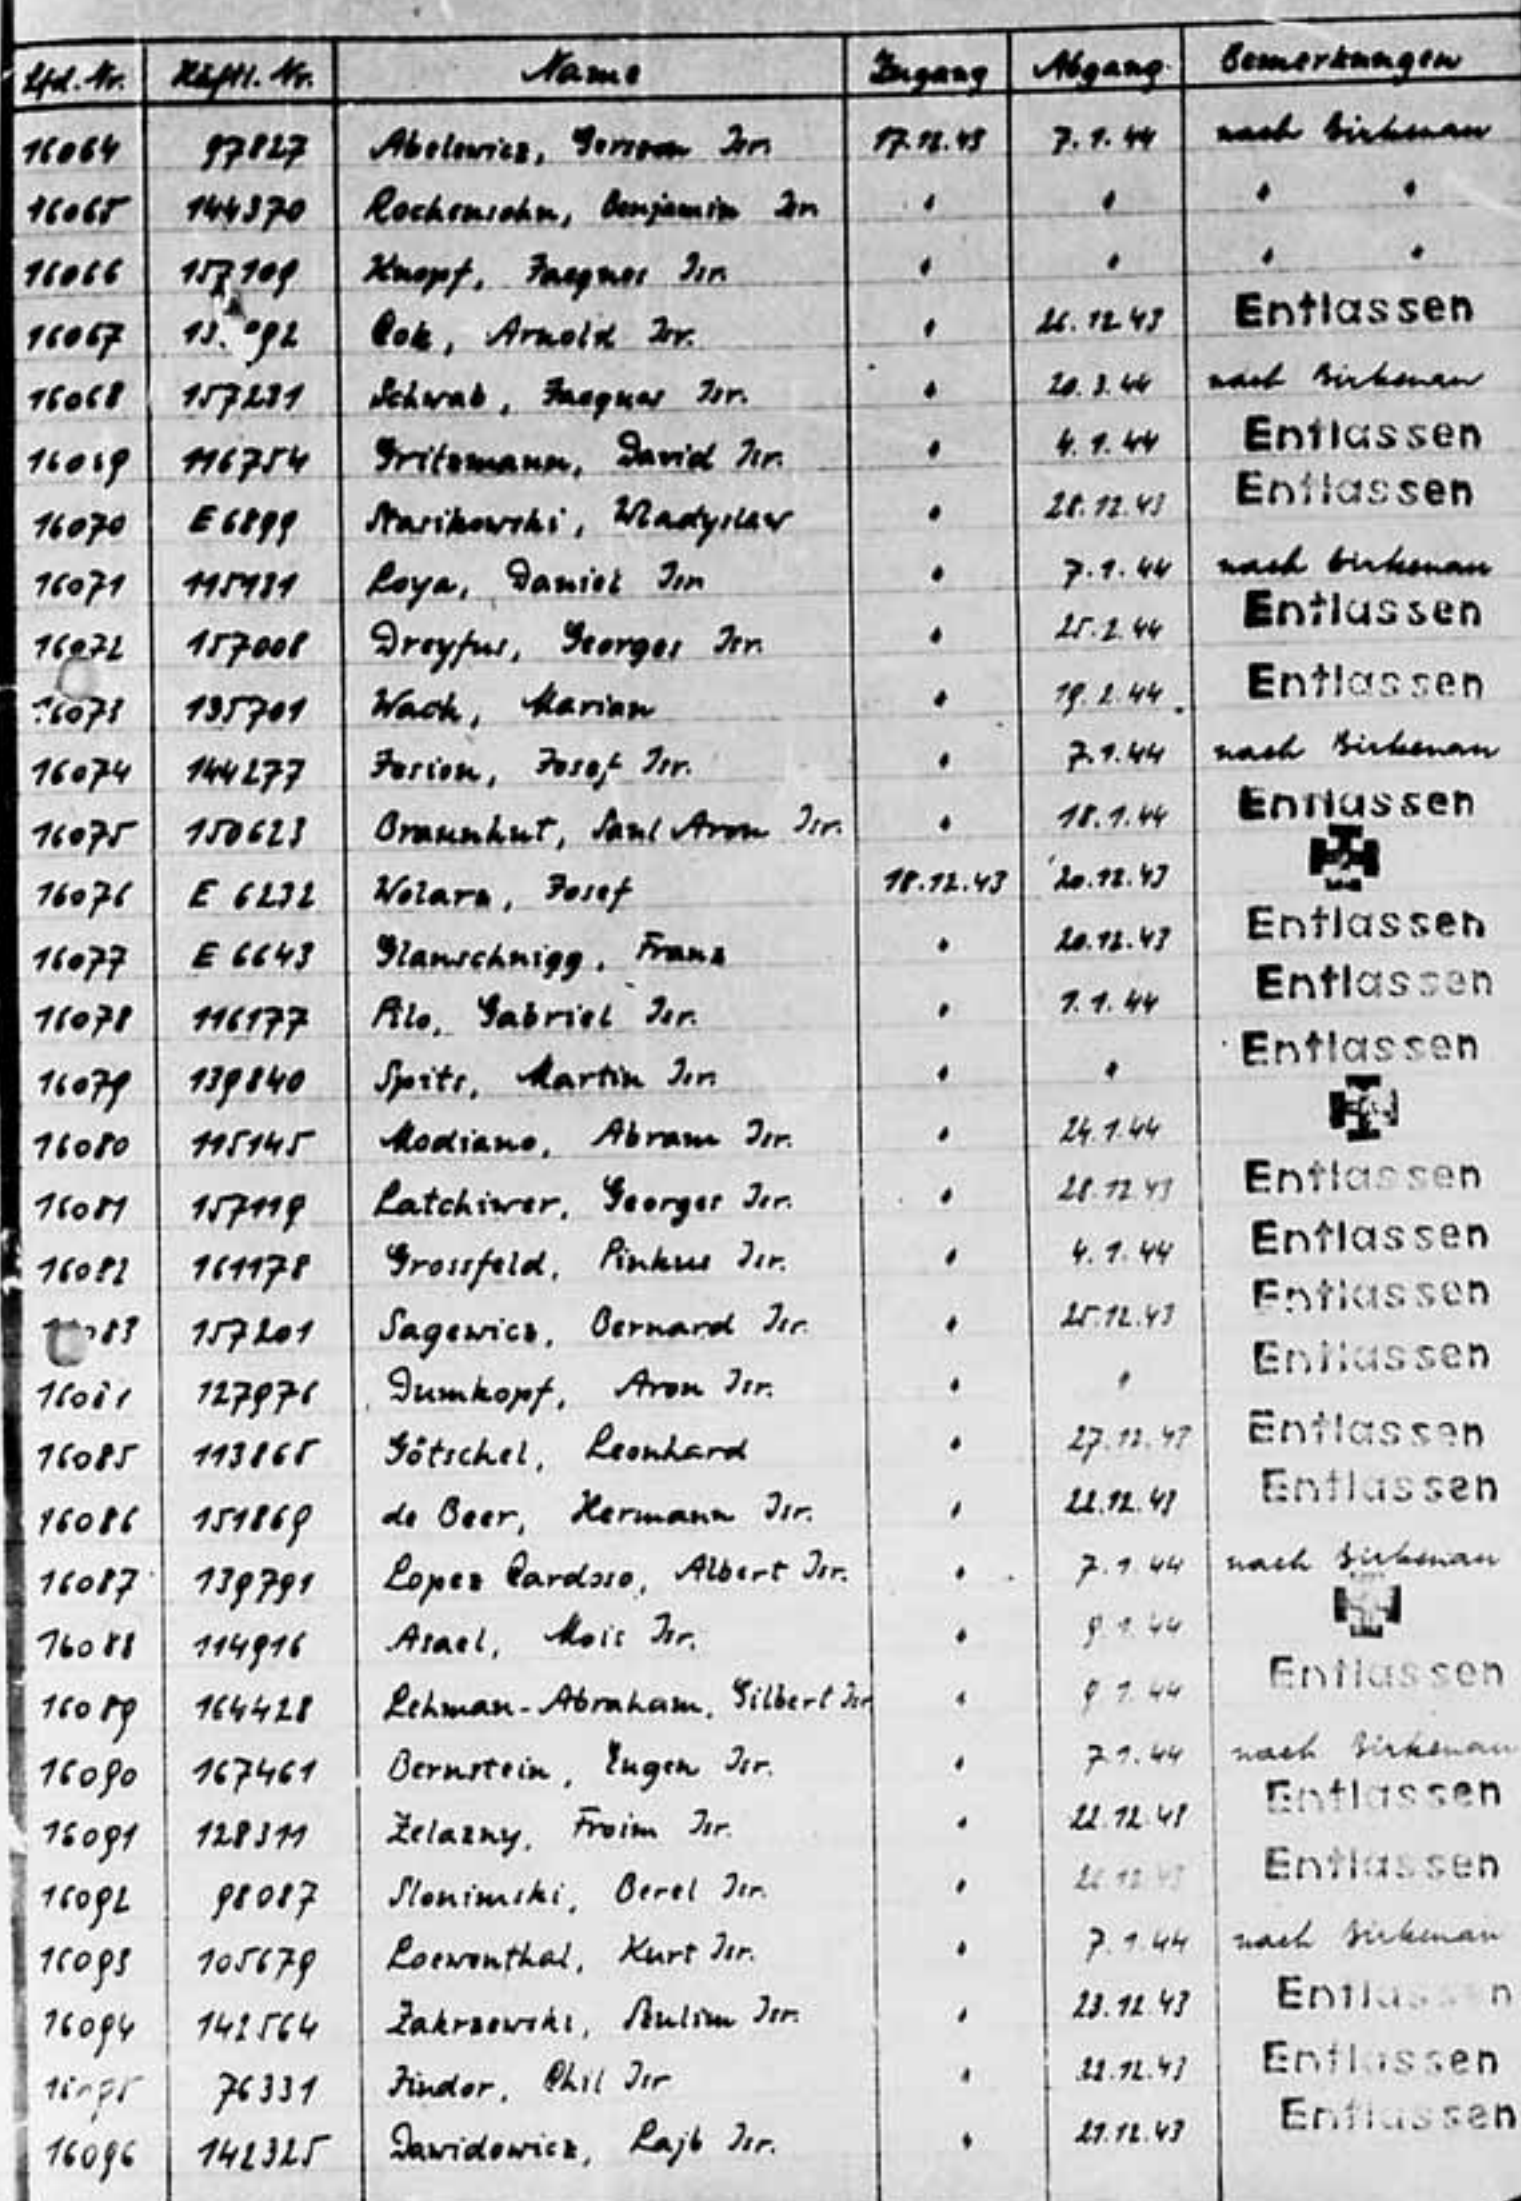 Lfd. Nr. Häftl. Nr. Name Zugang Abgang Bemerkungen
16064 97827 Abelowicz, Gerson Isr. 17.12.43 7.1.44 nach Birkenau
16065 144370 Rochensohn, Benjamin Isr. " " " "
16066 157109 Knopf, Jacques Isr. " " " "
16067 Cok, Arnold Isr. " 26.12.43 Entlassen
16068 157231 Schwab, Jacques Isr. " 20.3.44 nach Birkenau
16069 116754 Gritzmann, David Isr. " 4.1.44 Entlassen
16070 E 6899 Stasikowski, Wladyslaw " 28.12.43 Entlassen
16071 115131 Loya, Daniel Isr. " 7.1.44 nach Birkenau
16072 157008 Dreyfus, Georges Isr. " 25.2.44 Entlassen
16073 135701 Wach, Marian " 19.2.44 Entlassen
16074 144277 Josef Isr. " 7.1.44 nach Birkenau
16075 150623 Braunhut, Saul Aron Isr. " 18.1.44 Entlassen
16076 E 6232 Wolarz, Josef 18.12.43 20.12.43
16077 E 6643 Glanschnigg, Franz " 20.12.43 Entlassen
16078 116177 Pilo, Gabriel Isr. " 1.1.44 Entlassen
16079 139840 Spits, Martin Isr. " " Entlassen
16080 115145 Modiano, Abram Isr. " 24.1.44
16081 157119 Latchiwer, Georges Isr. " 28.12.43 Entlassen
16082 161178 Grossfeld, Pinkus Isr. " 4.1.44 Entlassen
157201 Sagewicz, Bernard Isr. " 25.12.43 Entlassen
127976 Dumkopf, Aron Isr. " " Entlassen
16085 113865 Götschel, Leonhard " 27.12.43 Entlassen
16086 151869 de Beer, Hermann Isr. " 22.12.43 Entlassen
16087 139791 Lopez Cardoso, Albert Isr. " 7.1.44 nach Birkenau
16088 114916 Asael, Mois Isr. " 9.1.44
16089 164428 Lehman-Abraham, Gilbert Isr " 9.1.44 Entlassen
16090 167461 Bernstein, Eugen Isr. " 7.1.44 nach Birkenau
16091 128311 Zelazny, Froim Isr. " 22.12.43 Entlassen
16092 98087 Slonimski, Berel Isr. " 26.12.43 Entlassen
16093 105679 Loewenthal, Kurt Isr. " 7.1.44 nach Birkenau
16094 142564 Zakrzewski, Szulim Isr. " 23.12.43 Entlassen
76331 Findor, Chil Isr " 22.12.43 Entlassen
16096 142325 Dawidowicz, Lajb Isr. " 21.12.43 Entlassen